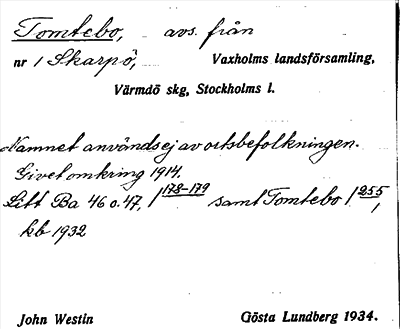 Tomtebo, avs. från
nr 1 Skarpö, Vaxholms landsförsamling,
Värmdö skg, Stockholms l.
Namnet användes ej av ortsbefolkningen.
Givet omkring 1914.
Litt Ba 46 o. 47, /178-179 samt Tomtebo /255,
kb 1932
John Westin Gösta Lundberg 1934.